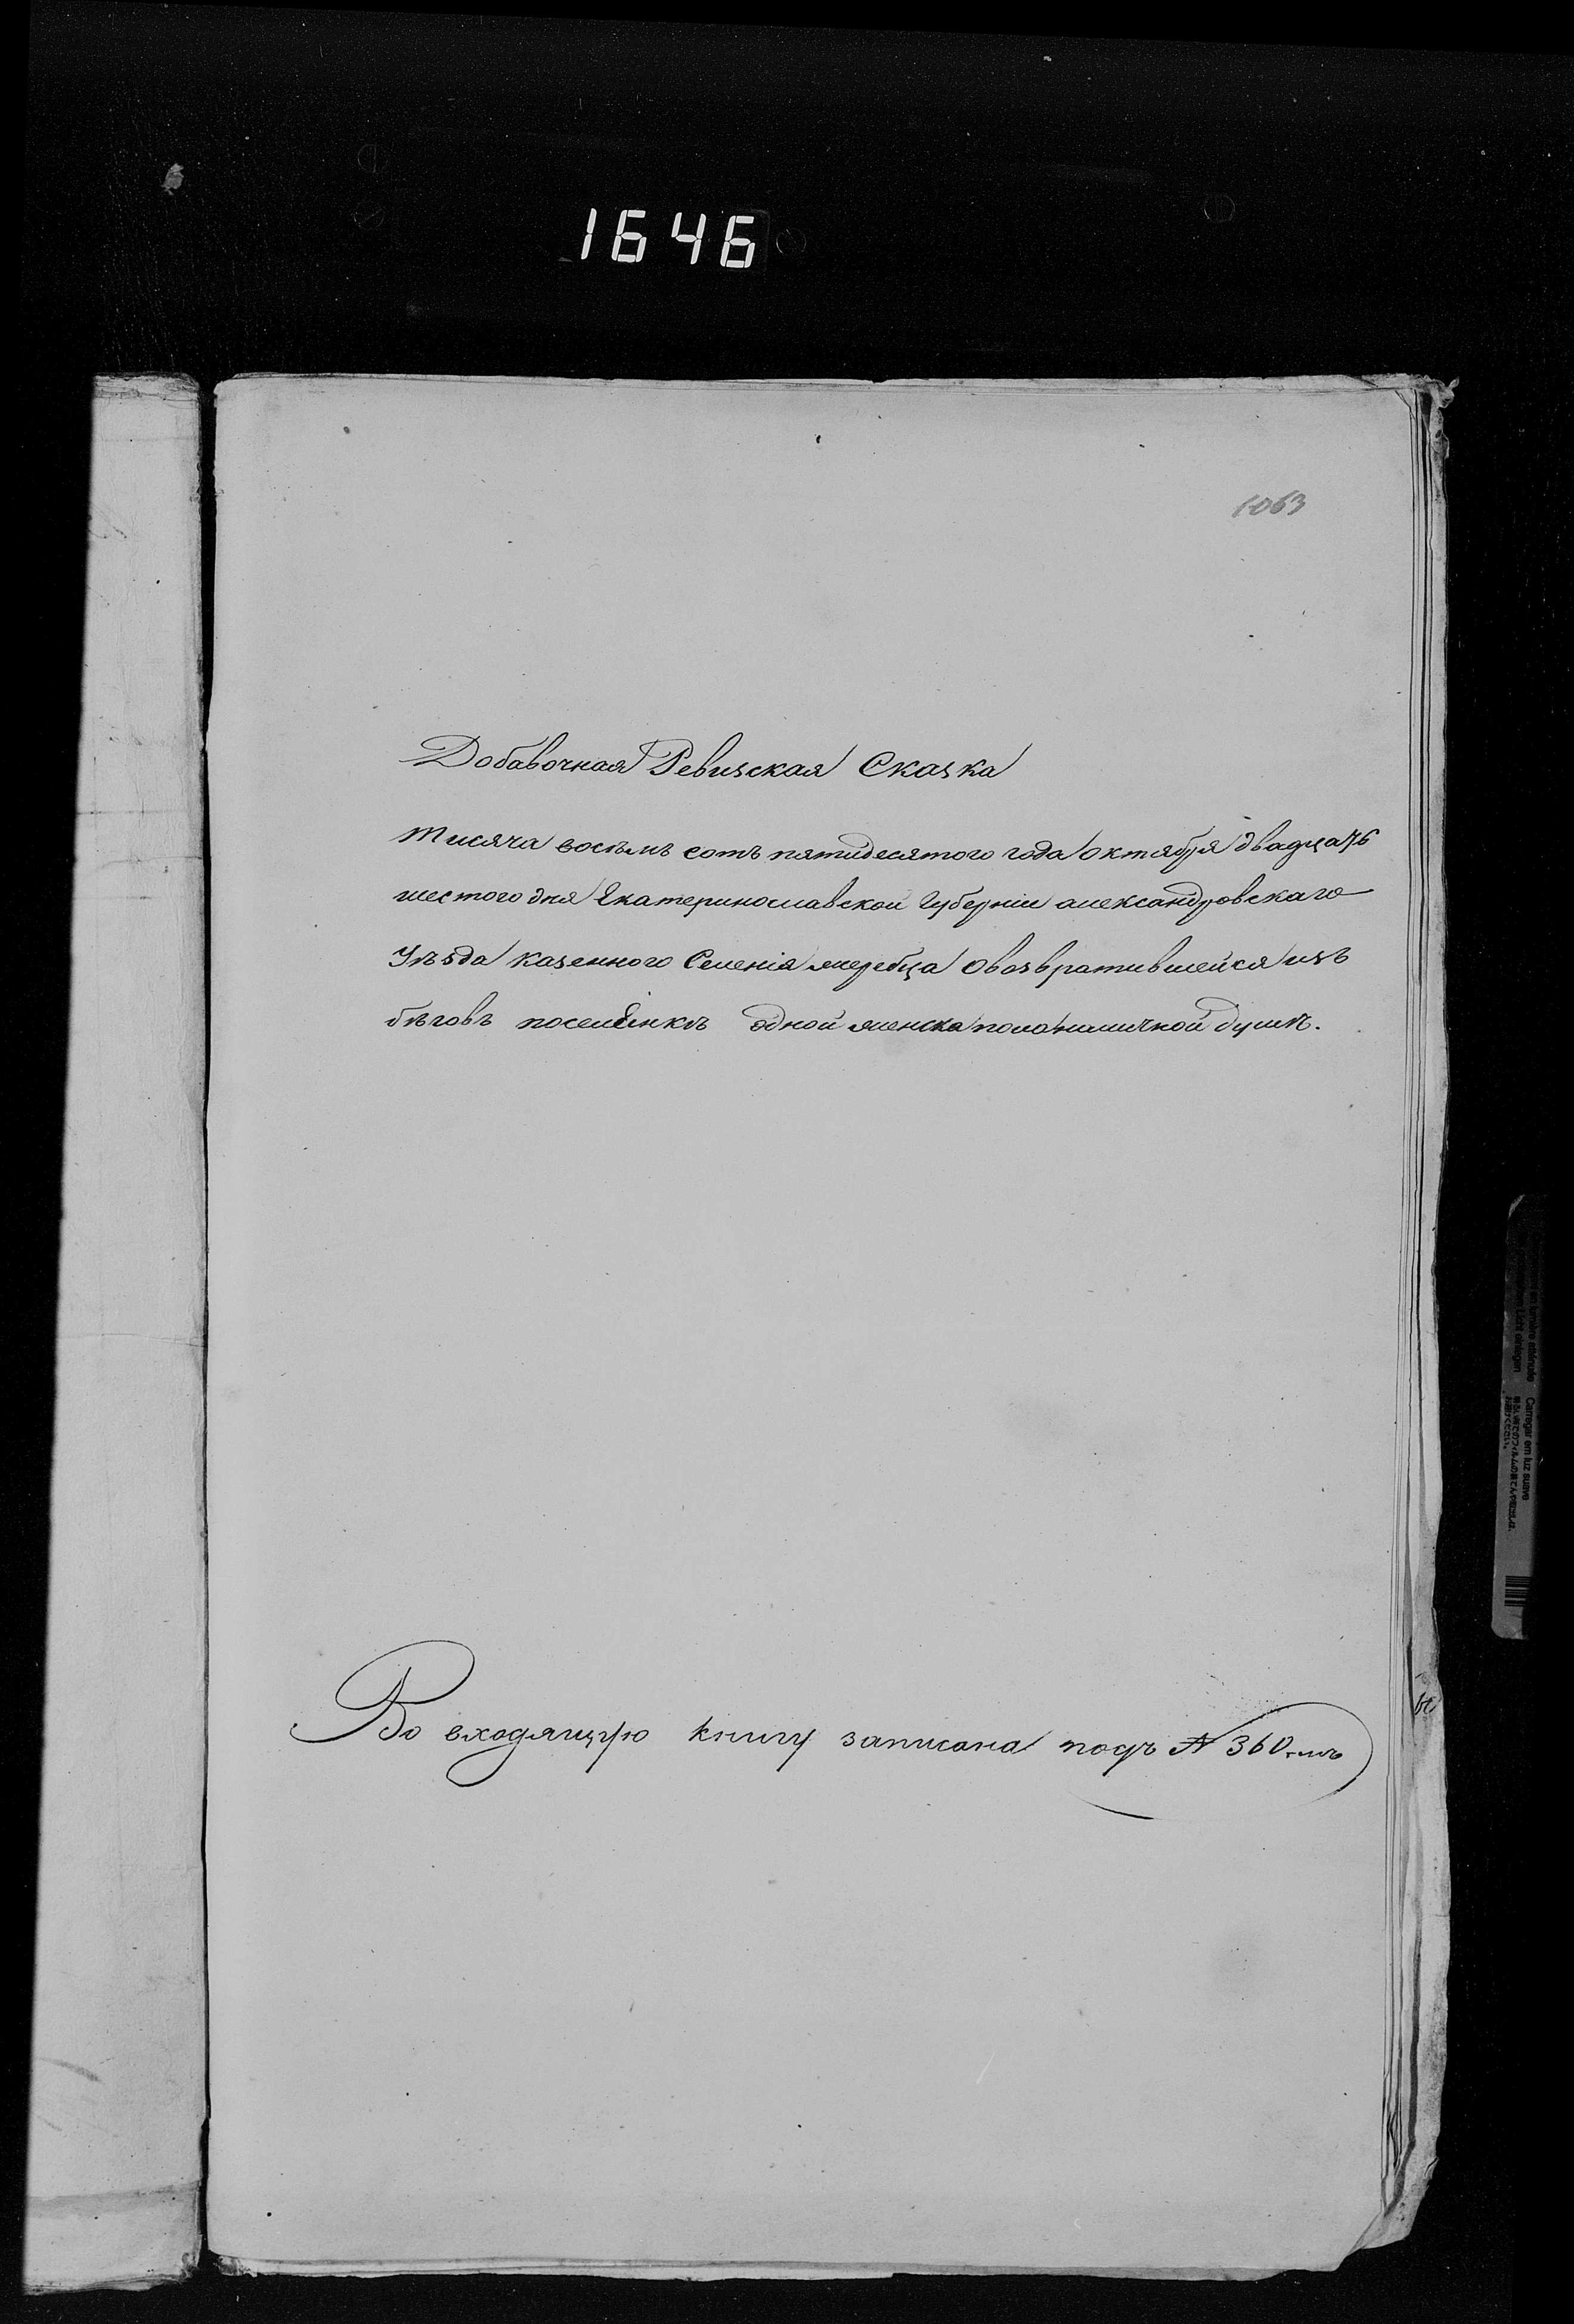 1646
1063
Добавочная Ревизская Сказка
тисяча восемь сотъ пятидесятого года октября двадцать
шестого дня Екатеринославской Губерніи александровскаго
Уѣзда казенного Селенія жеребца овозвратившейся изъ
бѣговъ поселянкѣ одной женска пола наличной душѣ.
Во входящую книгу записана подъ № 360.мъ